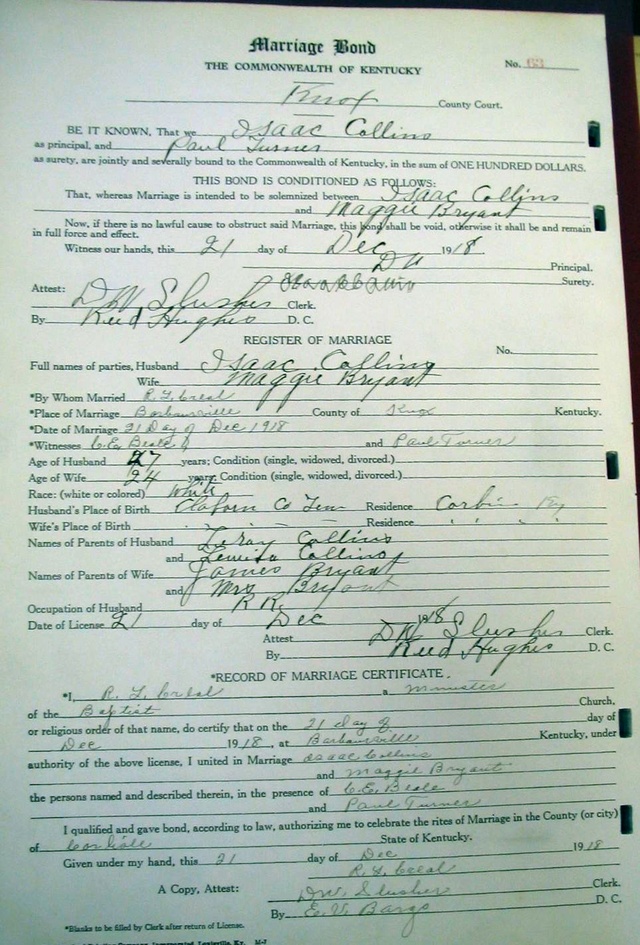 Marriage Bond
THE COMMONWEALTH OF KENTUCKY
No. 63
Knox County Court.
BE IT KNOWN, That we Isaac Collins
as principal, and Paul Turner
as surety, are jointly and severally bound to the Commonwealth of Kentucky, in the sum of ONE HUNDRED DOLLARS.
THIS BOND IS CONDITIONED AS FOLLOWS:
That, whereas Marriage is intended to be solemnized between Isaac Collins
and Maggie Bryant
Now, if there is no lawful cause to obstruct said Marriage, this bond shall be void, otherwise it shall be and remain
in full force and effect.
Witness our hands, this 21 day of Dec 1918
Principal.
Surety.
Attest: DW Slusher Clerk.
By Reed Hughes D. C.
REGISTER OF MARRIAGE
No.
Full names of parties, Husband Isaac Collins
Wife Maggie Bryant
*By Whom Married R. L. Creal
*Place of Marriage Barbourville County of Knox Kentucky.
*Date of Marriage 21 Day of Dec 1918
*Witnesses C. E. Beale and Paul Turner
Age of Husband 27 years; Condition (single, widowed, divorced.)
Age of Wife 24 years; Condition (single, widowed, divorced.)
Race: (white or colored) White
Husband's Place of Birth Claborn Co Tenn Residence Corbin Ky
Wife's Place of Birth " " " Residence " " "
Names of Parents of Husband Leroy Collins
and Collins
Names of Parents of Wife James Bryant
and Mrs Bryant
Occupation of Husband R R
Date of License 21 day of Dec 1918
Attest DW Slusher Clerk.
By Reed Hughes D. C.
*RECORD OF MARRIAGE CERTIFICATE.
*I, R. L. Creal a minister
of the Baptist Church,
or religious order of that name, do certify that on the 21 day of day of
Dec 1918, at Barbourville Kentucky, under
authority of the above license, I united in Marriage Isaac Collins
and Maggie Bryant
the persons named and described therein, in the presence of C. E. Beale
and Paul Turner
I qualified and gave bond, according to law, authorizing me to celebrate the rites of Marriage in the County (or city)
of Carlisle State of Kentucky.
Given under my hand, this 21 day of Dec 1918
R. L. Creal
A Copy, Attest: DW Slusher Clerk.
By E. V. Bargo
*Blanks to be filled by Clerk after return of License.